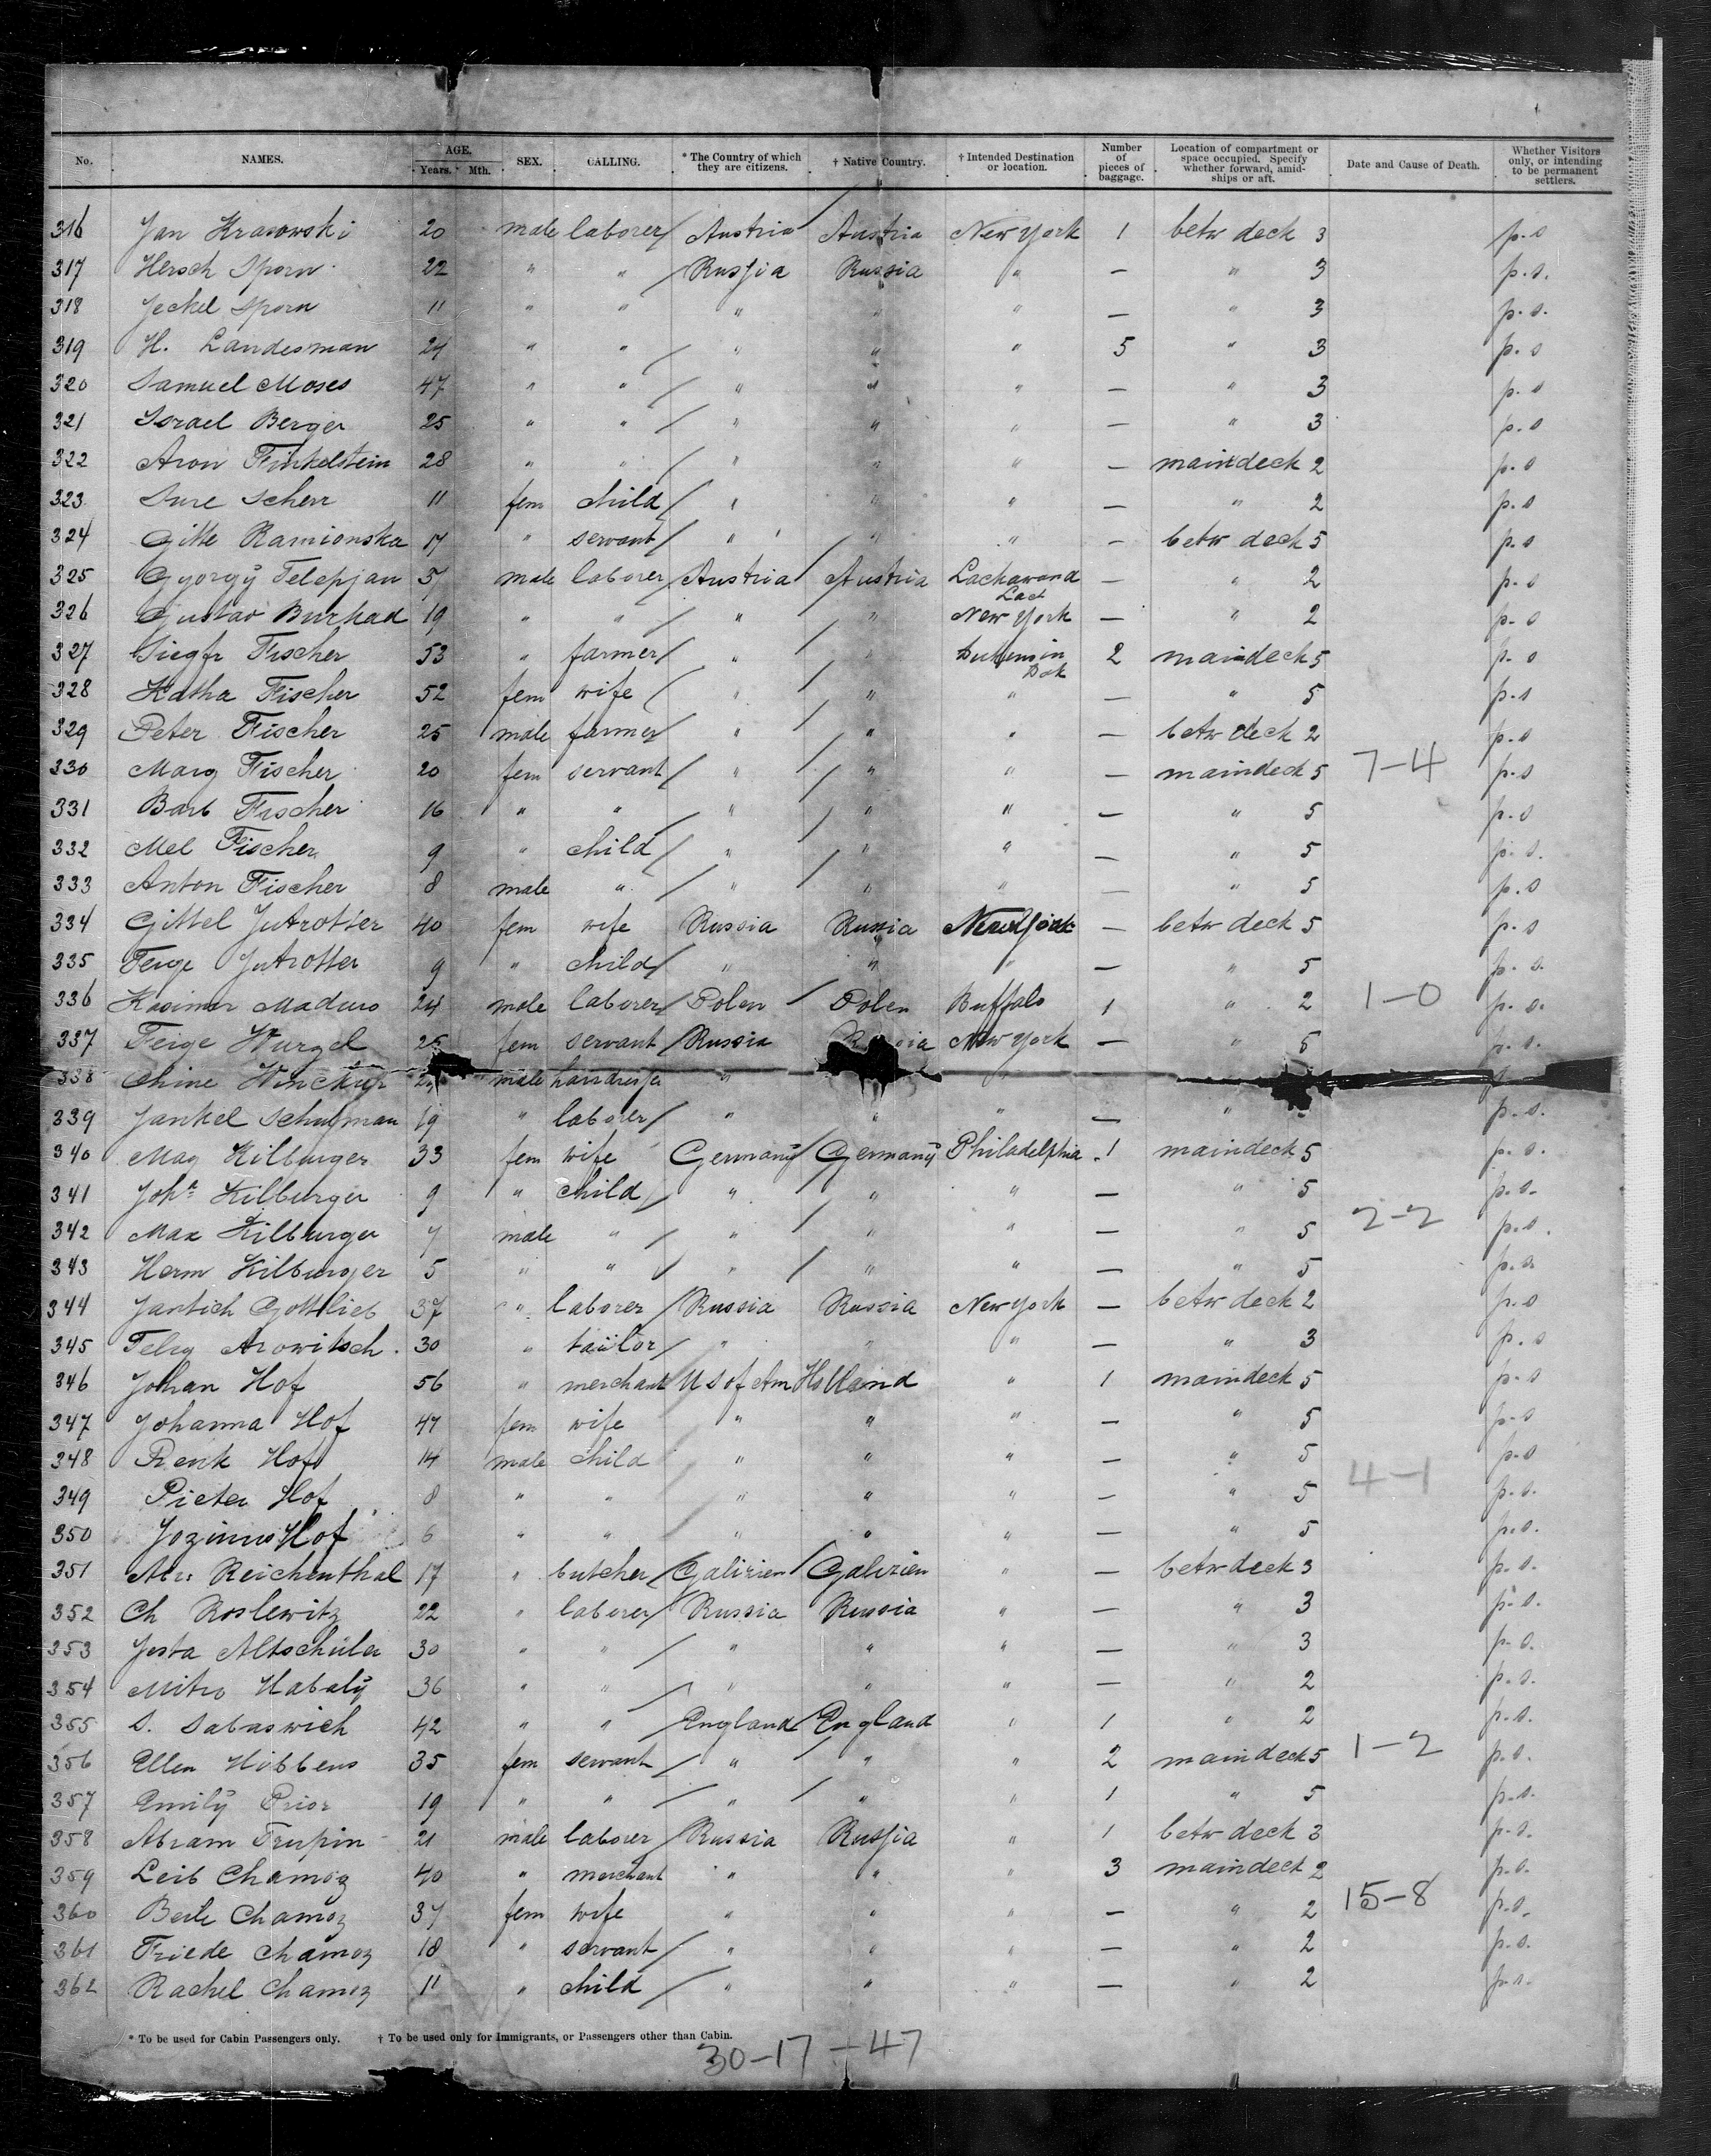 No. NAMES. AGE. Years. Mth. SEX. CALLING. * The Country of which they are citizens. † Native Country. † Intended Destination or location. Number of pieces of baggage. Location of compartment or space occupied. Specify whether forward, amid-ships or aft. Date and Cause of Death. Whether Visitors only, or intending to be permanent settlers.
316 Jan Krasowski 20 male laborer Austria Austria New York 1 betw deck 3 p.s
317 Hersch Sporn 22 " " Russia Russia " — " 3 p.s.
318 Jeckel Sporn 11 " " " " " — " 3 p.s.
319 H. Landesman 24 " " " " " 5 " 3 p.s
320 Samuel Moses 47 " " " " " — " 3 p.s
321 Israel Berger 25 " " " " " — " 3 p.s
322 Aron Finkelstein 28 " " " " " — maindeck 2 p.s
323 Sure Scherr 11 fem child " " " — " 2 p.s
324 Gitte Ramionska 17 " servant " " " — betw deck 5 p.s
325 Györgÿ Telepjan 37 male laborer Austria Austria Lackawand — " 2 p.s
Lact
326 Gustav Burkad 19 " " " " New York — " 2 p.s
327 Siegfr Fischer 53 " farmer " " 2 maindeck 5 p.s
Dak
328 Katha Fischer 52 fem wife " " " — " 5 p.s
329 Peter Fischer 25 male farmer " " " — betw deck 2 p.s
330 Marg Fischer 20 fem servant " " " — maindeck 5 7-4 p.s
331 Barb Fischer 16 " " " " " — " 5 p.s
332 Mel Fischer 9 " child " " " — " 5 p.s.
333 Anton Fischer 8 male " " " " — " 5 p.s
334 Gittel Jutrotter 40 fem wife Russia Russia New York — betw deck 5 p.s
335 Feige Jutrotter 9 " child " " " — " 5 p.s.
336 Kasimir Maduro 24 male laborer Polen Polen Buffalo 1 " 2 1-0 p.s.
337 Feige Wurzel 25 fem servant Russia New York — " 5 p.s.
338 Chine male "
339 Jankel Schugman 19 " laborer " " " — " p.s.
340 Mag Kilburger 33 fem wife Germanÿ Germanÿ Philadelphia 1 maindeck 5 p.s.
341 Joha Kilburger 9 " child " " " — " 5 p.s.
342 Max Kilburger 7 male " " " " — " 5 2-2 p.s.
343 Herm Kilburger 5 " " " " " — " 5 p.s.
344 Jantich Gottlieb 37 " laborer Russia Russia New York — betw deck 2 p.s
345 Arowitsch 30 " tailor " " " — " 3 p.s
346 Johan Hof 56 " merchant U S of Am Holland " 1 maindeck 5 p.s
347 Johanna Hof 47 fem wife " " " — " 5 p.s
348 Henk Hof 14 male child " " " — " 5 p.s
349 Pieter Hof 8 " " " " " — " 5 4-1 p.s.
350 Jozinus Hof 6 " " " " " — " 5 p.s.
351 Abr. Reichenthal 17 " butcher Galizien Galizien " — betw deck 3 p.s.
352 Ch Roslewitz 22 " laborer Russia Russia " — " 3 p.s.
353 Josta Altschuler 30 " " " " " — " 3 p.s.
354 Mitro Habalÿ 36 " " " " " — " 2 p.s.
355 S. Sabaswich 42 " " England England " 1 " 2 p.s.
356 Ellen Hibbens 35 fem servant " " " 2 maindeck 5 1-2 p.s.
357 Emilÿ Prior 19 " " " " " 1 " 5 p.s.
358 Abram Trupin 21 male laborer Russia Russia " 1 betw deck 3 p.s.
359 Leib Chamoz 40 " merchant " " " 3 maindeck 2 p.s.
360 Beile Chamoz 37 fem wife " " " — " 2 15-8 p.s.
361 Friede Chamoz 18 " servant " " " — " 2 p.s.
362 Rachel Chamoz 11 " child " " " — " 2 p.s.
* To be used for Cabin Passengers only. † To be used only for Immigrants, or Passengers other than Cabin.
30-17-47